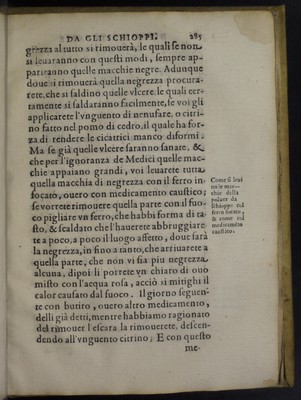 DA GLI SCHIOPPI. 285
grezza al tutto si rimouerà, le quali se non
si leuaranno con questi modi, sempre ap-
pariranno quelle macchie negre. Adunque
doue si rimouerà quella negrezza procura-
rete, che si saldino quelle vlcere, le quali cer-
tamente si saldaranno facilmente, se voi gli
applicarete l'vnguento di nenufare, o citri-
no fatto nel pomo di cedro, il quale ha for-
za di rendere le cicatrici manco diformi.
Ma se già quelle vlcere saranno sanate, &
che per l'ignoranza de Medici quelle mac-
chie appaiano grandi, voi leuarete tutta
quella macchia di negrezza con il ferro in-
focato, ouero con medicamento caustico;
se vorrete rimouere quella parte con il fuo-
co pigliare vn ferro, che habbi forma di ta-
sto, & scaldato che l'hauerete abbruggiare-
te a poco, a poco il luogo affetto, doue sarà
la negrezza, in fino a tanto, che arriuarete a
quella parte, che non vi sia piu negrezza
alcuna, dipoi li porrete vn chiaro di ouo
misto con l'acqua rosa, acciò si mitighi il
calor causato dal fuoco. Il giorno seguen-
te con butiro, ouero altro medicamento,
delli già detti, mentre habbiamo ragionato
del rimouer l'escara la rimouerete, descen-
dendo all'vnguento citrino; E con questo
me-
Come si leui
no le mac-
chie della
poluere da
schioppo col
ferro focato,
& come col
medicamento
caustico.